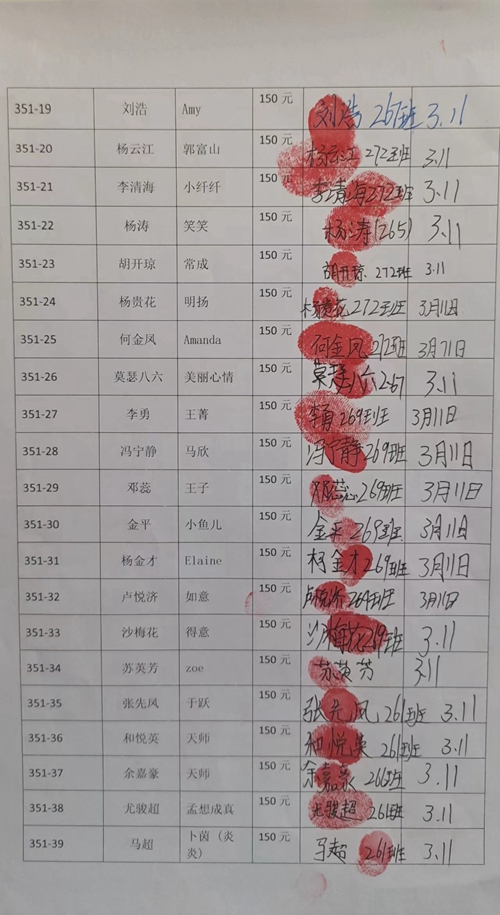 351-19 刘浩 Amy 150 元 刘浩 267班 3.11
351-20 杨云江 郭富山 150 元 杨云江 272班 3.11
351-21 李清海 小纤纤 150 元 李清海 272班 3.11
351-22 杨涛 笑笑 150 元 杨涛 (265) 3.11
351-23 胡开琼 常成 150 元 胡开琼 272班 3.11
351-24 杨贵花 明扬 150 元 杨贵花 272班 3月11日
351-25 何金凤 Amanda 150 元 何金凤 272班 3月11日
351-26 莫瑟八六 美丽心情 150 元 莫瑟八六 267 3.11
351-27 李勇 王菁 150 元 李勇 269班 3月11日
351-28 冯宁静 马欣 150 元 冯宁静 269班 3月11日
351-29 邓蕊 王子 150 元 邓蕊 269班 3月11日
351-30 金平 小鱼儿 150 元 金平 269班 3月11日
351-31 杨金才 Elaine 150 元 杨金才 269班 3月11日
351-32 卢悦济 如意 150 元 卢悦济 269班 3月11日
351-33 沙梅花 得意 150 元 沙梅花 269班 3.11
351-34 苏英芳 zoe 150 元 苏英芳 3.11
351-35 张先凤 于跃 150 元 张先凤 261班 3.11
351-36 和悦英 天师 150 元 和悦英 261班 3.11
351-37 余嘉豪 天师 150 元 余嘉豪 266班 3.11
351-38 尤骏超 孟想成真 150 元 尤骏超 261班 3.11
351-39 马超 卜茵 (炎 150元 马超 261班 3.11
炎)